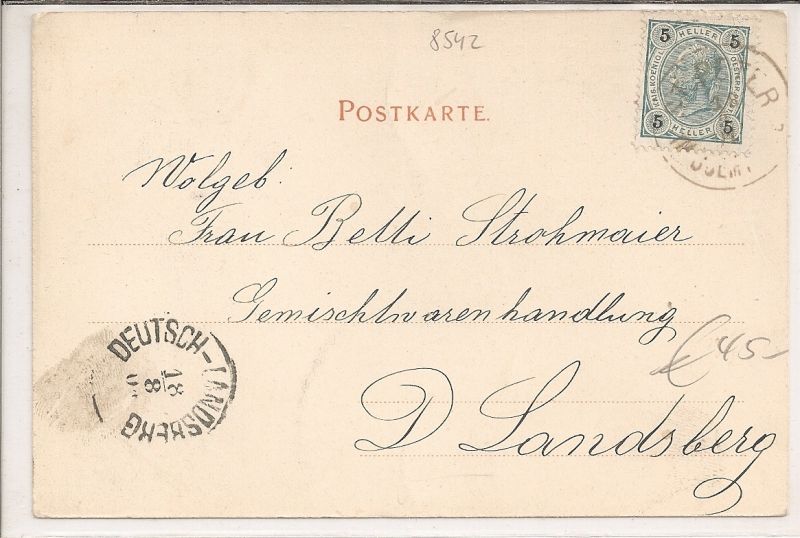 8542
5 HELLER 5
KAIS. KOENIGL. OESTERR. POST
5 HELLER 5
POSTKARTE.
Wolgeb.
Frau Betti Strohmaier
Gemischtwarenhandlung
€ 45-
D Landsberg
DEUTSCH-LANDSBERG
31
8